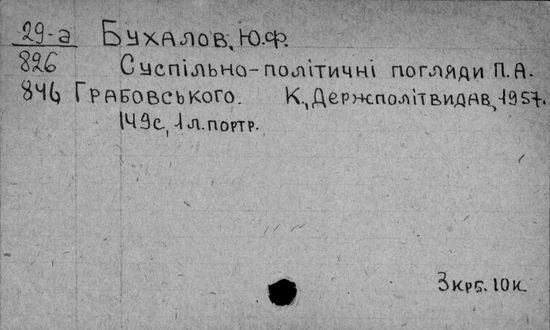 29-а Бухалов, Ю.Ф.
826 Суспільно-політичні погляди П.А.
846 Грабовського. К., Держполітвидав, 1957.
149с., 1 л. портр.
3 крб. 10 к.